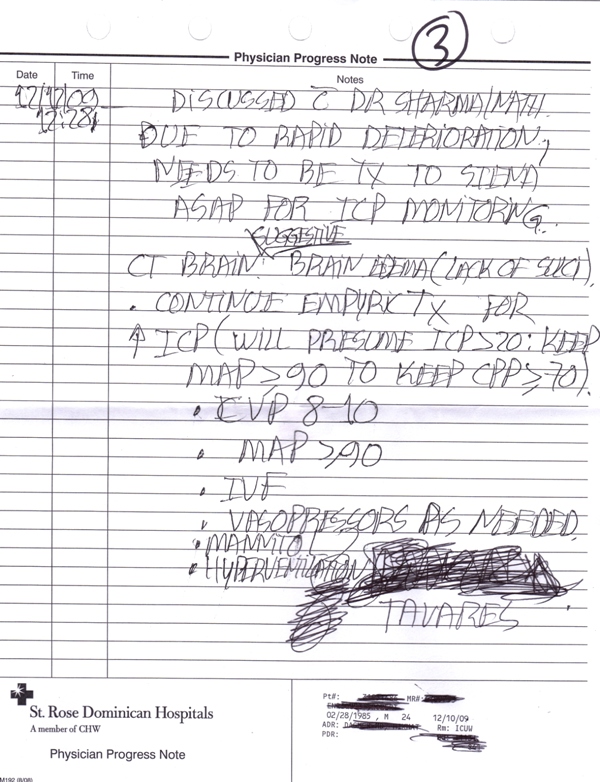 3
Physician Progress Note
Date Time Notes
12/12/09 DISCUSSED c̄ DR SHARMA/NATH.
12:28 DUE TO RAPID DETERIORATION,
NEEDS TO BE TX TO SIENA
ASAP FOR ICP MONITORING.
SUGGESTIVE
CT BRAIN: BRAIN EDEMA (LACK OF SULCI).
. CONTINUE EMPYRIC TX FOR
↑ ICP (WILL PRESUME ICP >20: KEEP
MAP ≥ 90 TO KEEP CPP ≥ 70).
• CVP 8-10
• MAP ≥ 90
• IVF
• VASOPRESSORS AS NEEDED.
• MANNITOL
• HYPERVENTILATION
TAVARES
St. Rose Dominican Hospitals
A member of CHW
Physician Progress Note
M192 (8/08)
Pt#: MR#:
02/28/1985 , M 24 12/10/09
ADR: Rm: ICUW
PDR: